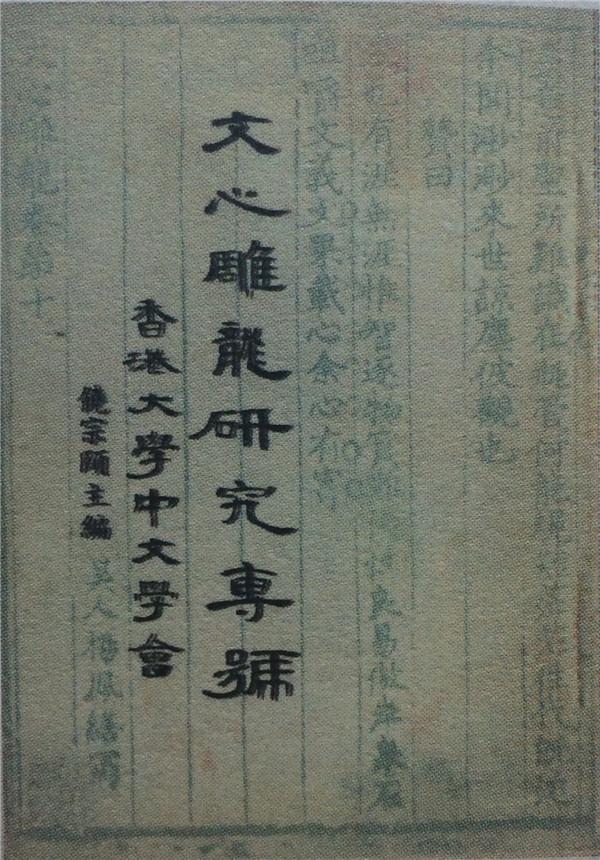 前聖所難識在缾管何能
聞渺渺來世諒塵彼觀也
贊曰
也有涯無涯惟智逐物實難 性良易傲岸泉石
咀嚼文義文果載心余心有寄
文心雕龍研究專號
香港大學中文學會
饒宗頤主編
吳人楊鳳繕寫
龍卷第十